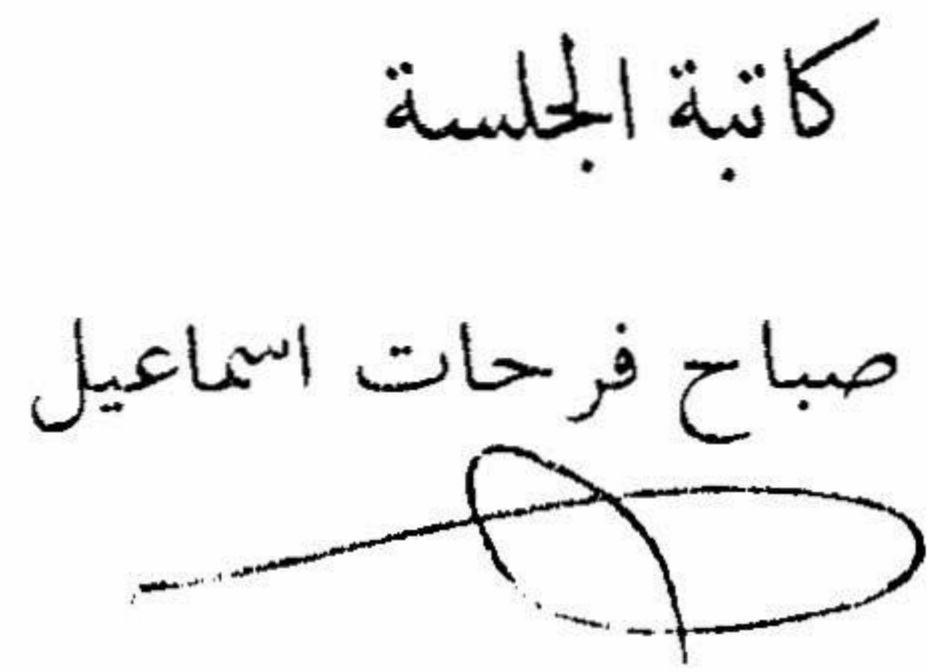 كاتبة الجلسة
صباح فرحات اسماعيل